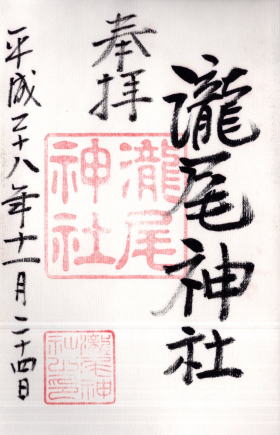 奉拝
瀧尾神社
平成二十八年十一月二十四日
瀧尾
神社
瀧尾神
社之印